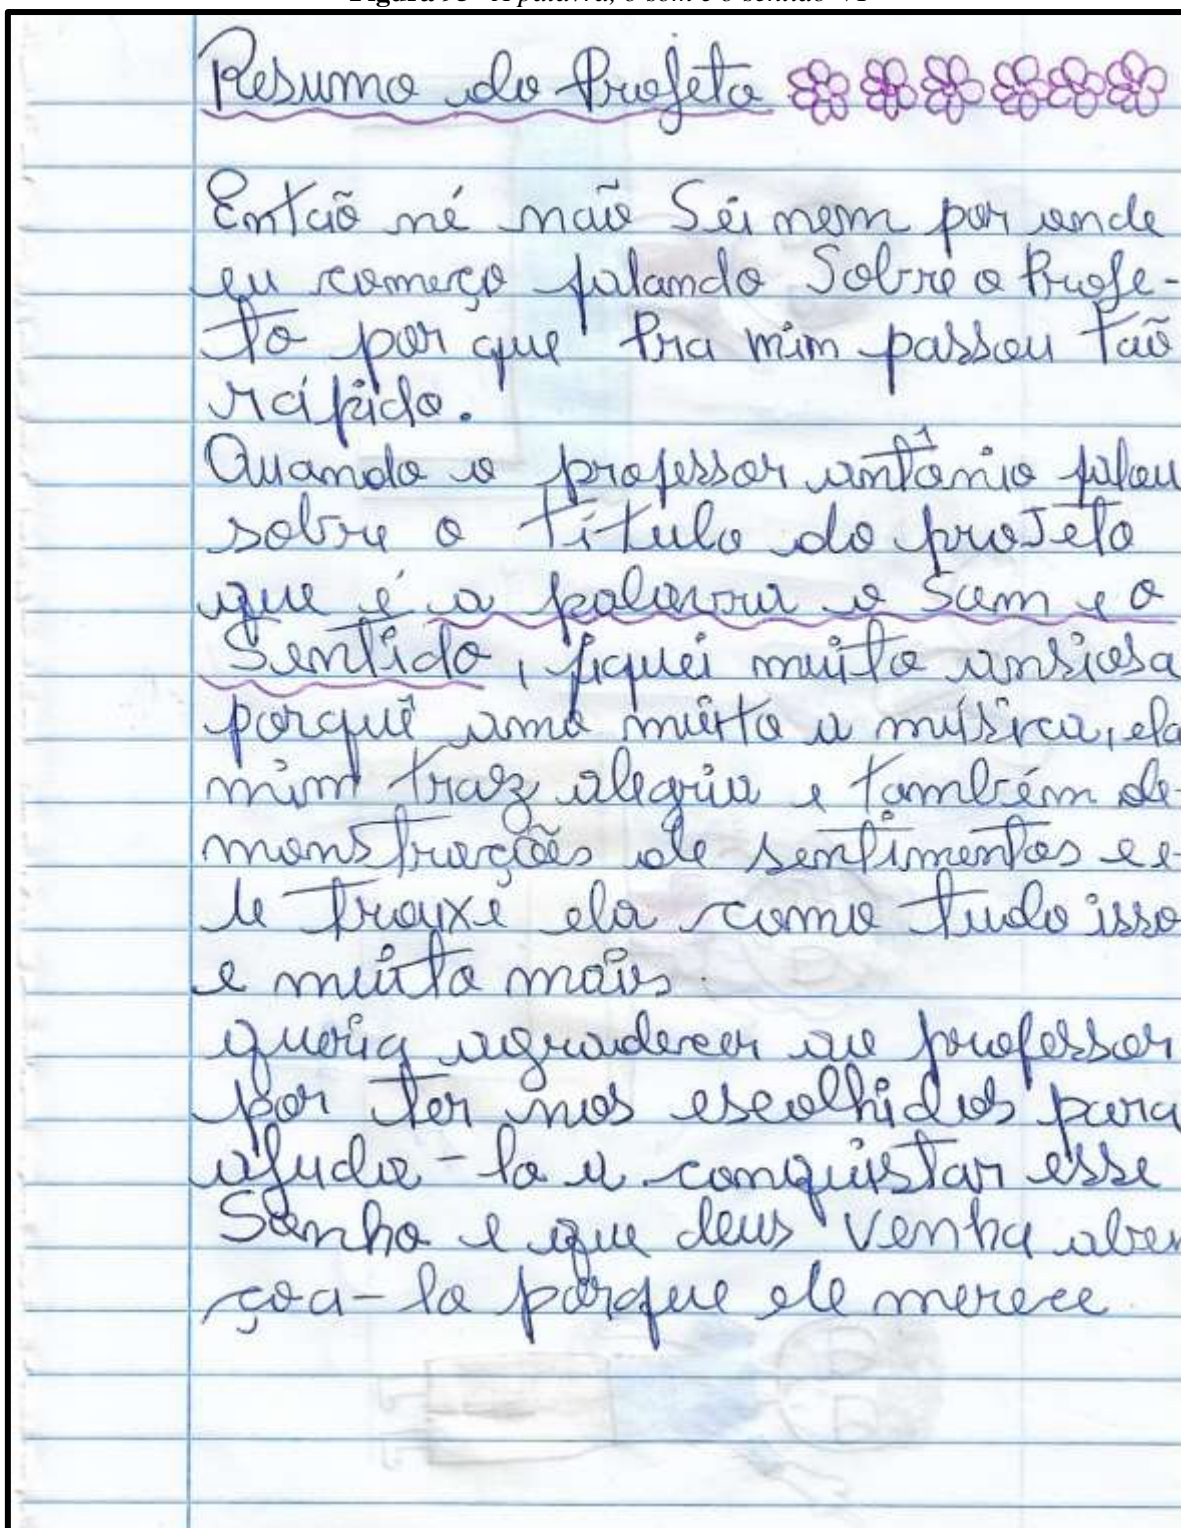 Resumo do Projeto
Então né não Sei nem por onde
eu começo falando Sobre o Proje-
to por que Pra mim passou Tão
rápido.
Quando o professor antônio falou
sobre o Título do proJeto
que é a palavra o Som e o
Sentido, fiquei muito ansiosa
porquê amo muito a música, ela
mim traz alegria e também de-
monstrações de sentimentos e e-
le trouxe ela como tudo isso
e muito mais.
queria agradecer ao professor
por ter nos escolhidos para
ajuda-lo a conquistar esse
Sonho e que deus venha aben
çoa-lo porque ele merece